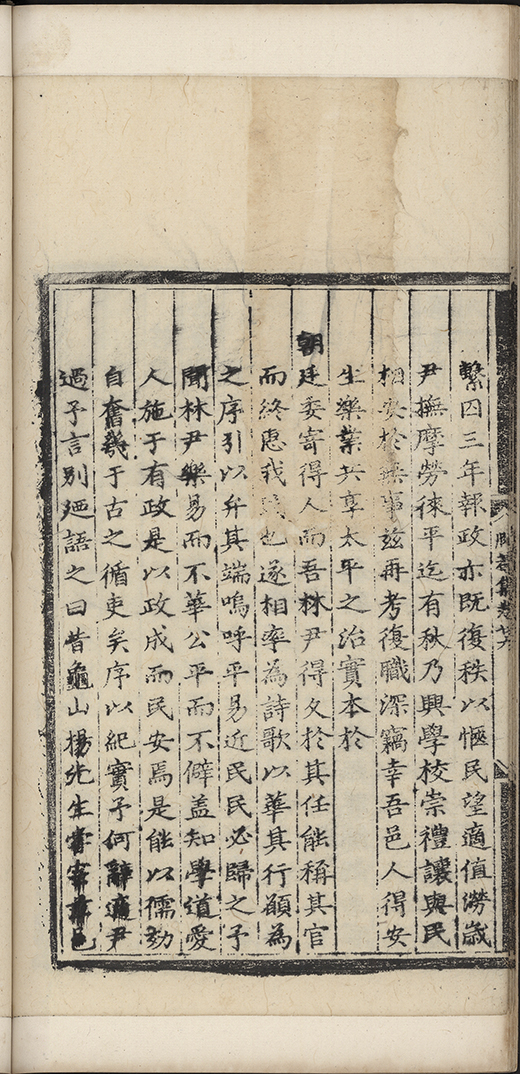 繫四三年報政亦既復秩以愜民望適值澇歲
尹撫摩勞徠平迄有秋乃興學校崇禮讓與民
相安於無事茲再考復職深竊幸吾邑人得安
生樂業共享太平之治實本於
朝廷委寄得人而吾林尹得久於其任能稱其官
而終惠我民也遂相率為詩歌以華其行願為
之序引以弁其端嗚呼平易近民民必歸之予
聞林尹樂易而不華公平而不僻盖知學道愛
人施于有政是以政成而民安焉是能以儒効
自奮幾于古之循吏矣序以紀實予何辭適尹
過予言別廼語之曰昔龜山楊先生嘗宰
集卷廿六